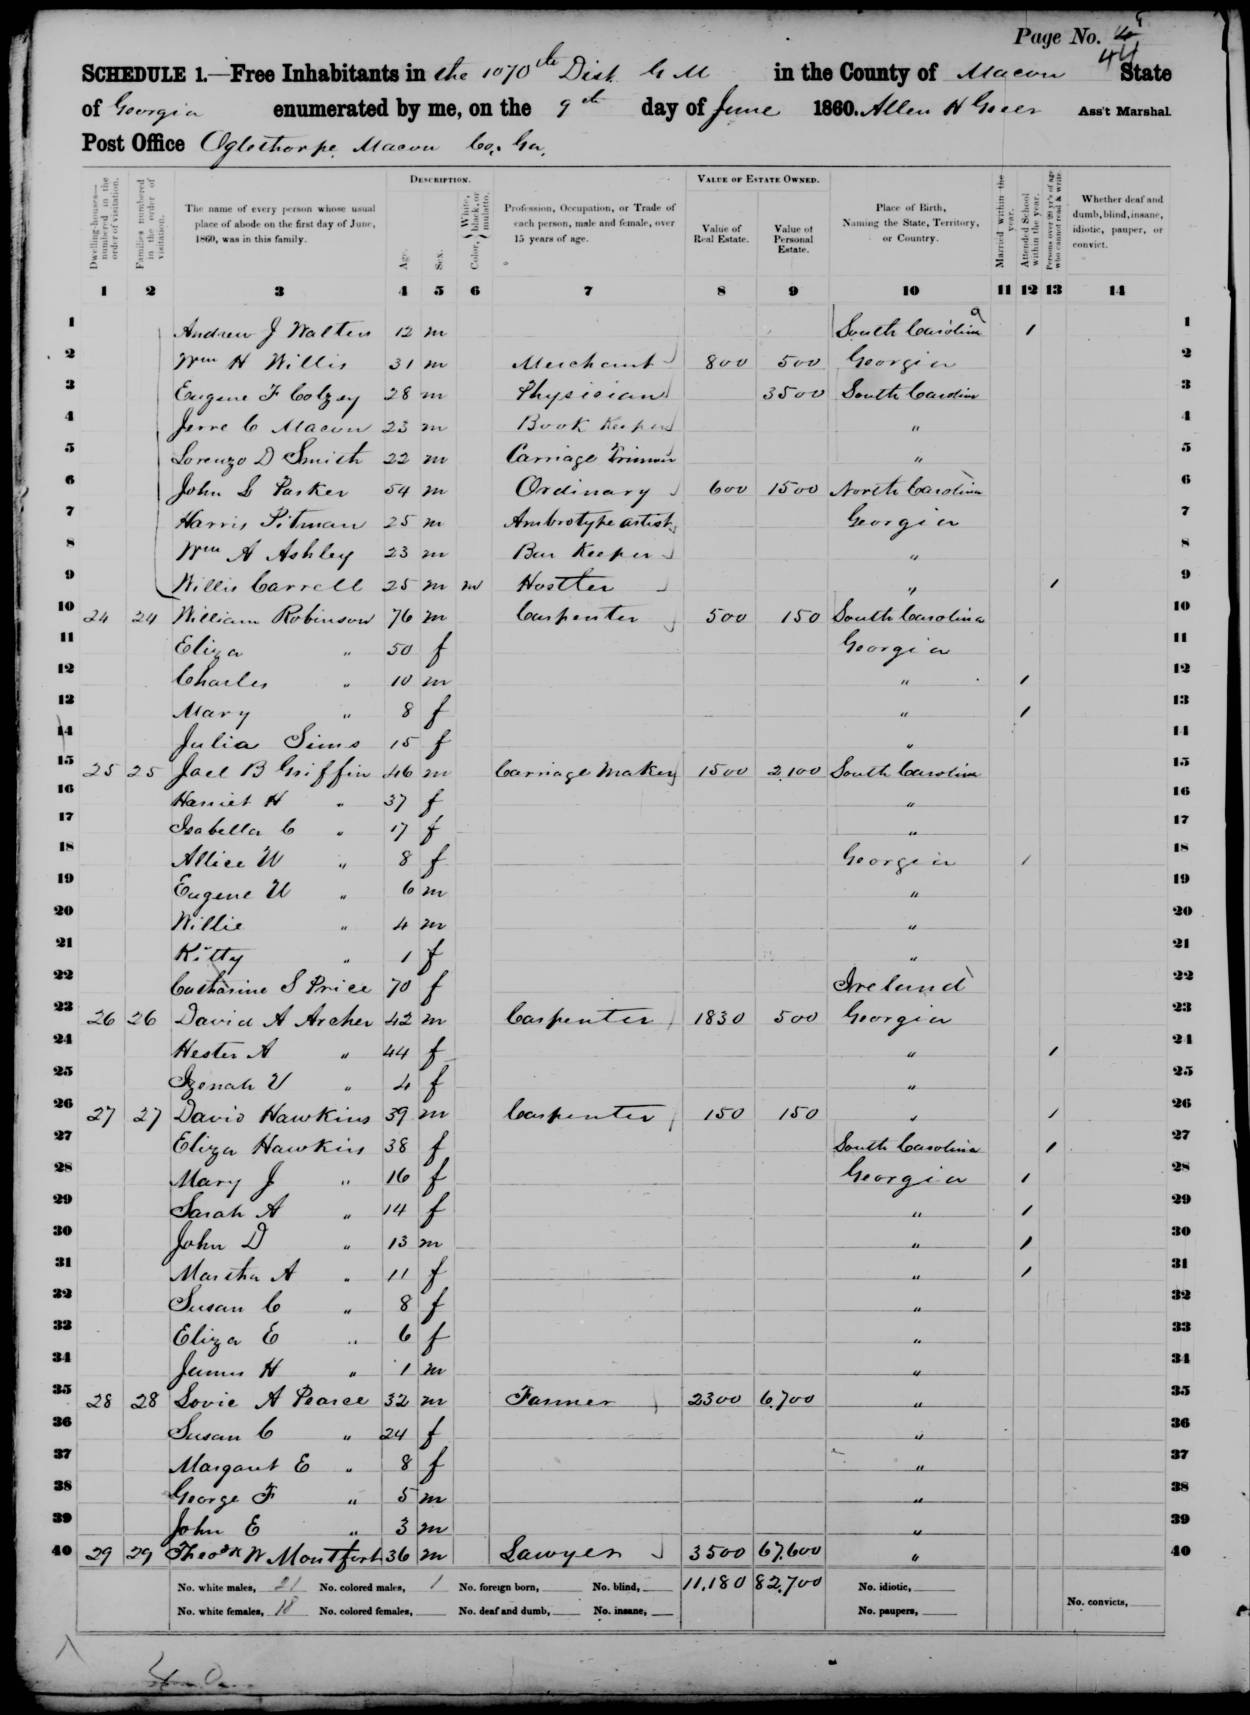 Page No. 44
SCHEDULE 1.—Free Inhabitants in the 1070th Dist G M in the County of Macon State
of Georgia enumerated by me, on the 9th day of June 1860. Allen H Greer Ass't Marshal.
Post Office Oglethorpe Macon Co, Ga,
DESCRIPTION. VALUE OF ESTATE OWNED.
Dwelling-houses—numbered in the order of visitation. Families numbered in the order of visitation. The name of every person whose usual place of abode on the first day of June, 1860, was in this family. Age. Sex. Color, White, black, or mulatto. Profession, Occupation, or Trade of each person, male and female, over 15 years of age. Value of Real Estate. Value of Personal Estate. Place of Birth, Naming the State, Territory, or Country. Married within the year. Attended School within the year. Persons over 20 yr's of age who cannot read & write. Whether deaf and dumb, blind, insane, idiotic, pauper, or convict.
1 2 3 4 5 6 7 8 9 10 11 12 13 14
1 Andrew J Walters 12 m South Carolina 1 1
2 Wm H Willis 31 m Merchant 800 500 Georgia 2
3 Eugene F Colzey 28 m Physician 3500 South Carolina 3
4 Jerre C Macon 23 m Book Keeper " 4
5 Lorenzo D Smith 22 m Carriage Trimmer " 5
6 John L Parker 54 m Ordinary 600 1500 North Carolina 6
7 Harris Pitman 25 m Ambrotype artist Georgia 7
8 Wm A Ashley 23 m Bar Keeper " 8
9 Willis Carrell 25 m m Hostler " 1 9
10 24 24 William Robinson 76 m Carpenter 500 150 South Carolina 10
11 Eliza " 50 f Georgia 11
12 Charles " 10 m " 1 12
13 Mary " 8 f " 1 13
14 Julia Sims 15 f " 14
15 25 25 Joel B Griffin 46 m Carriage Maker 1500 2,100 South Carolina 15
16 Harriet H " 37 f " 16
17 Isabella C " 17 f " 17
18 Allice U " 8 f Georgia 1 18
19 Eugene U " 6 m " 19
20 Willie " 4 m " 20
21 Kitty " 1 f " 21
22 Catharine S Price 70 f Ireland 22
23 26 26 David A Archer 42 m Carpenter 1830 500 Georgia 23
24 Hester A " 44 f " 1 24
25 Izenah V " 4 f " 25
26 27 27 David Hawkins 39 m Carpenter 150 150 " 1 26
27 Eliza Hawkins 38 f South Carolina 1 27
28 Mary J " 16 f Georgia 1 28
29 Sarah A " 14 f " 1 29
30 John D " 13 m " 1 30
31 Martha A " 11 f " 1 31
32 Susan C " 8 f " 32
33 Eliza E " 6 f " 33
34 James H " 1 m " 34
35 28 28 Lovic A Pearce 32 m Farmer 2300 6,700 " 35
36 Susan C " 24 f " 36
37 Margaret E " 8 f " 37
38 George F " 5 m " 38
39 John E " 3 m " 39
40 29 29 W Montfort 36 m Lawyer 3500 67,600 " 40
No. white males, 21 No. colored males, 1 No. foreign born, No. blind, 11,180 82,700 No. idiotic,
No. white females, 18 No. colored females, No. deaf and dumb, No. insane, No. paupers, No. convicts,